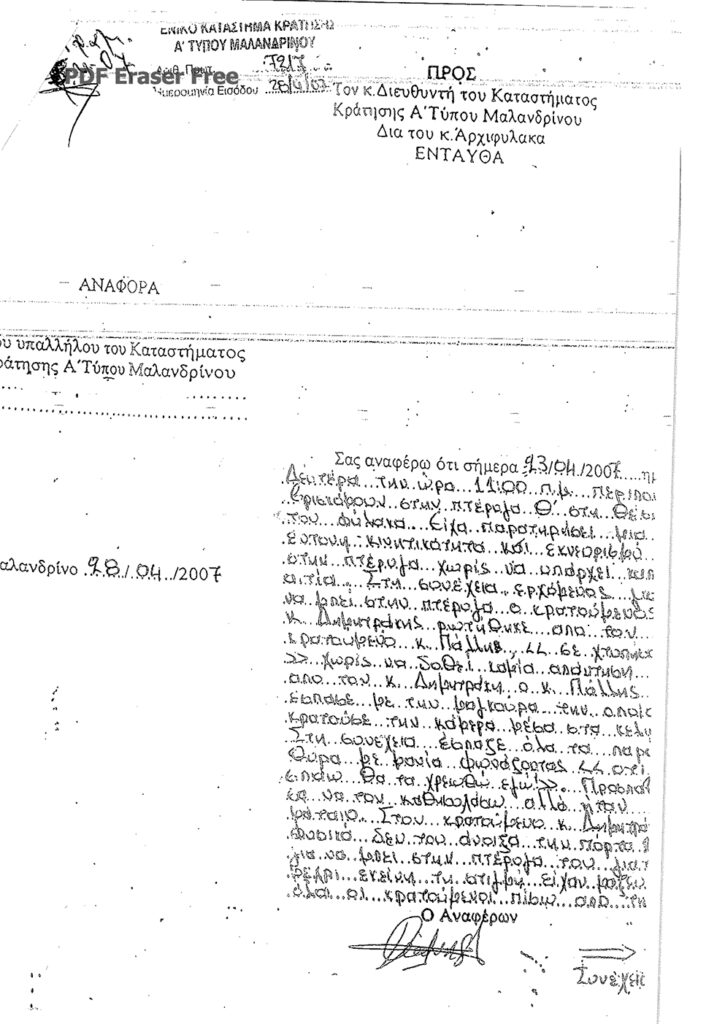 ΕΝΙΚΟ ΚΑΤΑΣΤΗΜΑ ΚΡΑΤΗΣΗΣ
Α΄ ΤΥΠΟΥ ΜΑΛΑΝΔΡΙΝΟΥ
PDF Eraser Free
Αριθ. Πρωτ. 7217
Ημερομηνία Εισόδου 28/4/07
ΠΡΟΣ
Τον κ.Διευθυντή του Καταστήματος
Κράτησης Α΄Τύπου Μαλανδρίνου
Δια του κ.Αρχιφυλακα
ΕΝΤΑΥΘΑ
ΑΝΑΦΟΡΑ
ου υπαλλήλου του Καταστήματος
ράτησης Α΄Τύπου Μαλανδρίνου
αλανδρίνο 28/04/2007
Σας αναφέρω ότι σήμερα 23/04/2007 ημ
Δευτέρα την ώρα 11:00 π.μ. περίπου
βρισκόμουν στην πτέρυγα Θ' στη θέσ
του φύλακα. Είχα παρατηρήσει μια
έντονη κινητικότητα και εκνευρισμό
στην πτέρυγα χωρίς να υπάρχει
αιτία. Στη συνέχεια ερχόμενος
να μπει στην πτέρυγα ο κρατούμενος
κ. Δημητράκης ρωτήθηκε από τον
κρατούμενο κ. Πάλλης, << σε χτύπησ
>> χωρίς να δοθεί καμία απάντηση
από τον κ. Δημητράκη ο κ. Πάλλης
έσπασε με την μαγκούρα την οποί
κρατούσε την κάμερα μέσα στα κελι
Στη συνέχεια έσπαζε όλα τα παρ
θυρα με μανία φωνάζοντας << ότι
σπάω θα τα χρεωθώ εγώ!>>. Προσπαθ
σα να τον καθησυχάσω αλλά ήταν
μάταιο. Στον κρατούμενο κ. Δημητρά
φυσικά δεν του άνοιξα την πόρτα
για να μπει στην πτέρυγα του
εκείνη τη στιγμή είχαν
όλοι οι κρατούμενοι πίσω από τη
Ο Αναφέρων
Συνέχεια